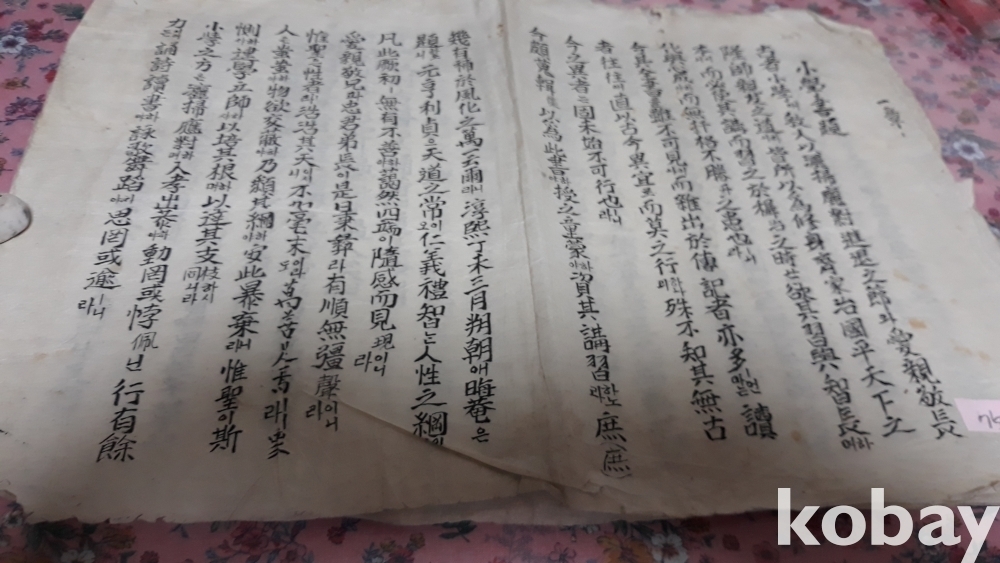 小學書題
古者小學에敎人以灑掃應對進退之節과愛親敬長
隆師親友之道하니皆所以爲修身齊家治國平天下之
本이니而必使其講而習之於穉之時는欲其習與智長하며
化與心成而無扞格不勝之患也니라
今其全書를雖不可見이나而雜出於傳記者亦多언마는讀
者往往에直以古今異宜로而莫之行하나니殊不知其無古
今之異者는固未始不可行也니라
今頗蒐輯하야以爲此書하야授之童蒙하야資其講習하노니庶(庶)
幾有補於風化之萬一云爾라니淳熙丁未三月朔朝애晦菴은
題하노라元亨利貞은天道之常이오仁義禮智는人性之綱이니
凡此厥初ㅣ無有不善하야藹然四端이隨感而見現이니라
愛親敬兄과忠君弟長이是曰秉彛라有順無彊이니라
惟聖은性者라浩浩其天이시니不加毫末이라도萬善足焉이니라衆
人은蚩蚩하야物欲交蔽하야乃頹其綱하야安此暴棄하나니라惟聖이斯
惻하샤建學立師하샤以培其根하며以達其支枝同하시니라
小學之方은灑掃應對하며入孝出恭하야動罔或悖佩니行有餘
力이어든誦詩讀書하며詠歌舞蹈하야思罔或逾ㅣ니라
kobay